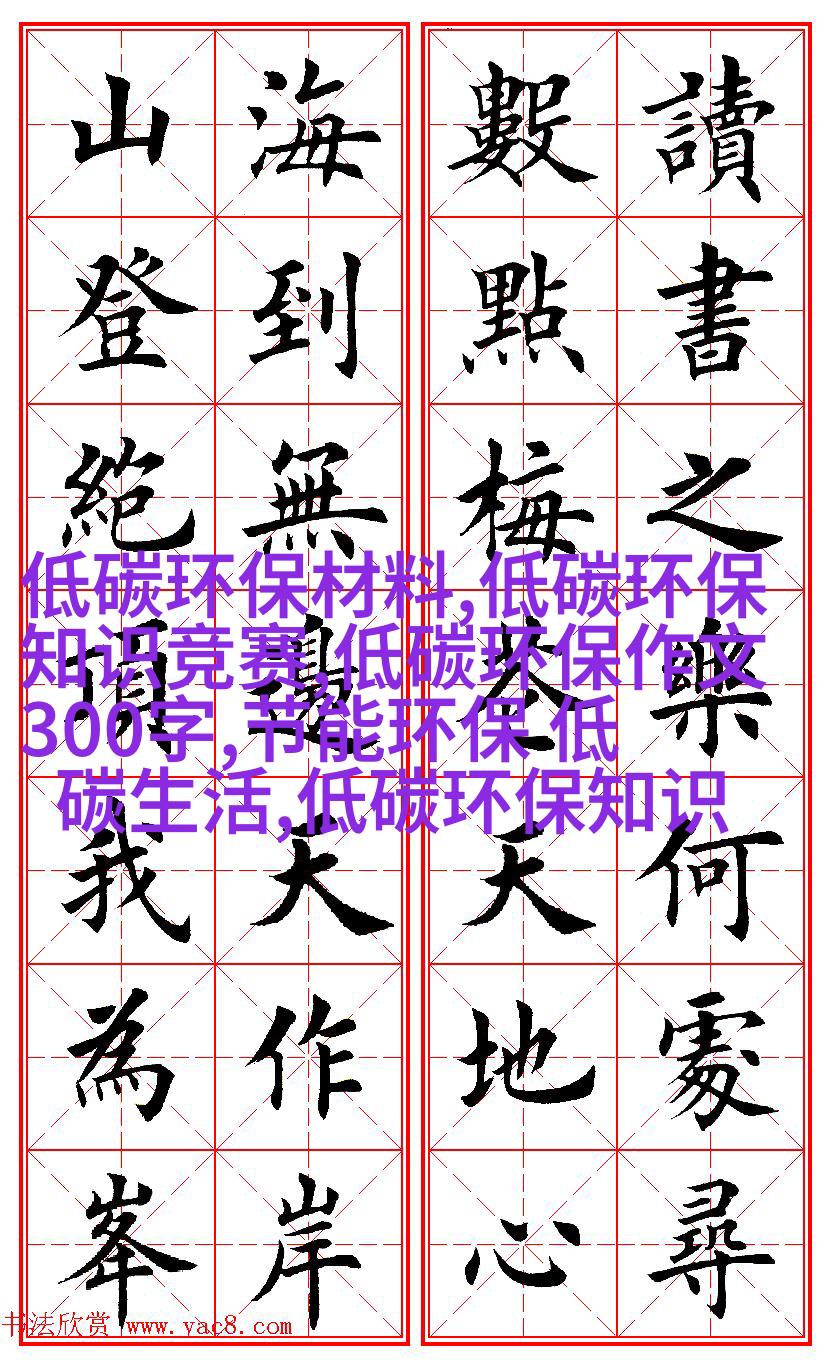 讀書之樂何處尋
數點梅花天地心
海到無邊天作岸
山登絶頂我為峯
低碳环保材料,低碳环保
知识竞赛,低碳环保作文
300字,节能环保 低
碳生活,低碳环保知识
书法欣赏 www.yac8.com